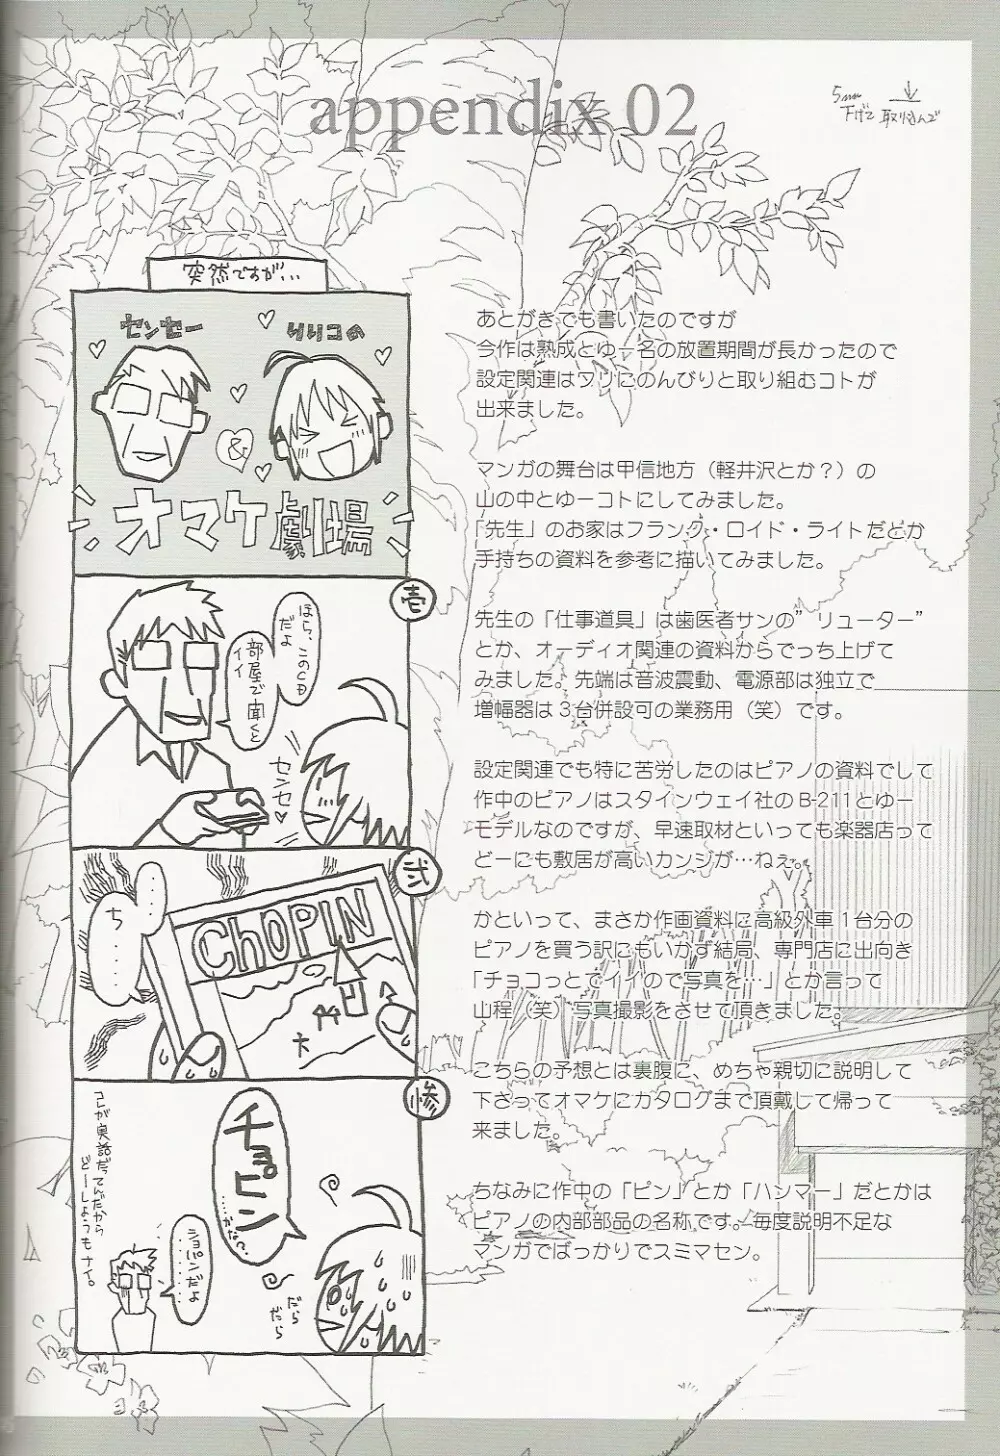 appendix 02
5mm
下げて
取り込んで
突然ですが...
センセー
&
リリコの
オマケ劇場
壱
ほら、このCD
だよ
部屋で聞くと
イイ
センセ♡
弐
・・・
ち・・・・
CHOPIN
惨
チョピン
...かな?
だら
だら
ショパンだよ
・・・・・・
コレが実話だってんだから
どーしようもナイ。
あとがきでも書いたのですが
今作は熟成とゆー名の放置期間が長かったので
設定関連はワリにのんびりと取り組むコトが
出来ました。
マンガの舞台は甲信地方（軽井沢とか？）の
山の中とゆーコトにしてみました。
「先生」のお家はフランク・ロイド・ライトだとか
手持ちの資料を参考に描いてみました。
先生の「仕事道具」は歯医者サンの”リューター”
とか、オーディオ関連の資料からでっち上げて
みました。先端は音波震動、電源部は独立で
増幅器は３台併設可の業務用（笑）です。
設定関連でも特に苦労したのはピアノの資料でして
作中のピアノはスタインウェイ社のB-211とゆー
モデルなのですが、早速取材といっても楽器店って
どーにも敷居が高いカンジが…ねぇ。
かといって、まさか作画資料に高級外車１台分の
ピアノを買う訳にもいかず結局、専門店に出向き
「チョコっとでイイので写真を…」とか言って
山程（笑）写真撮影をさせて頂きました。
こちらの予想とは裏腹に、めちゃ親切に説明して
下さってオマケにカタログまで頂戴して帰って
来ました。
ちなみに作中の「ピン」とか「ハンマー」だとかは
ピアノの内部部品の名称です。毎度説明不足な
マンガでばっかりでスミマセン。